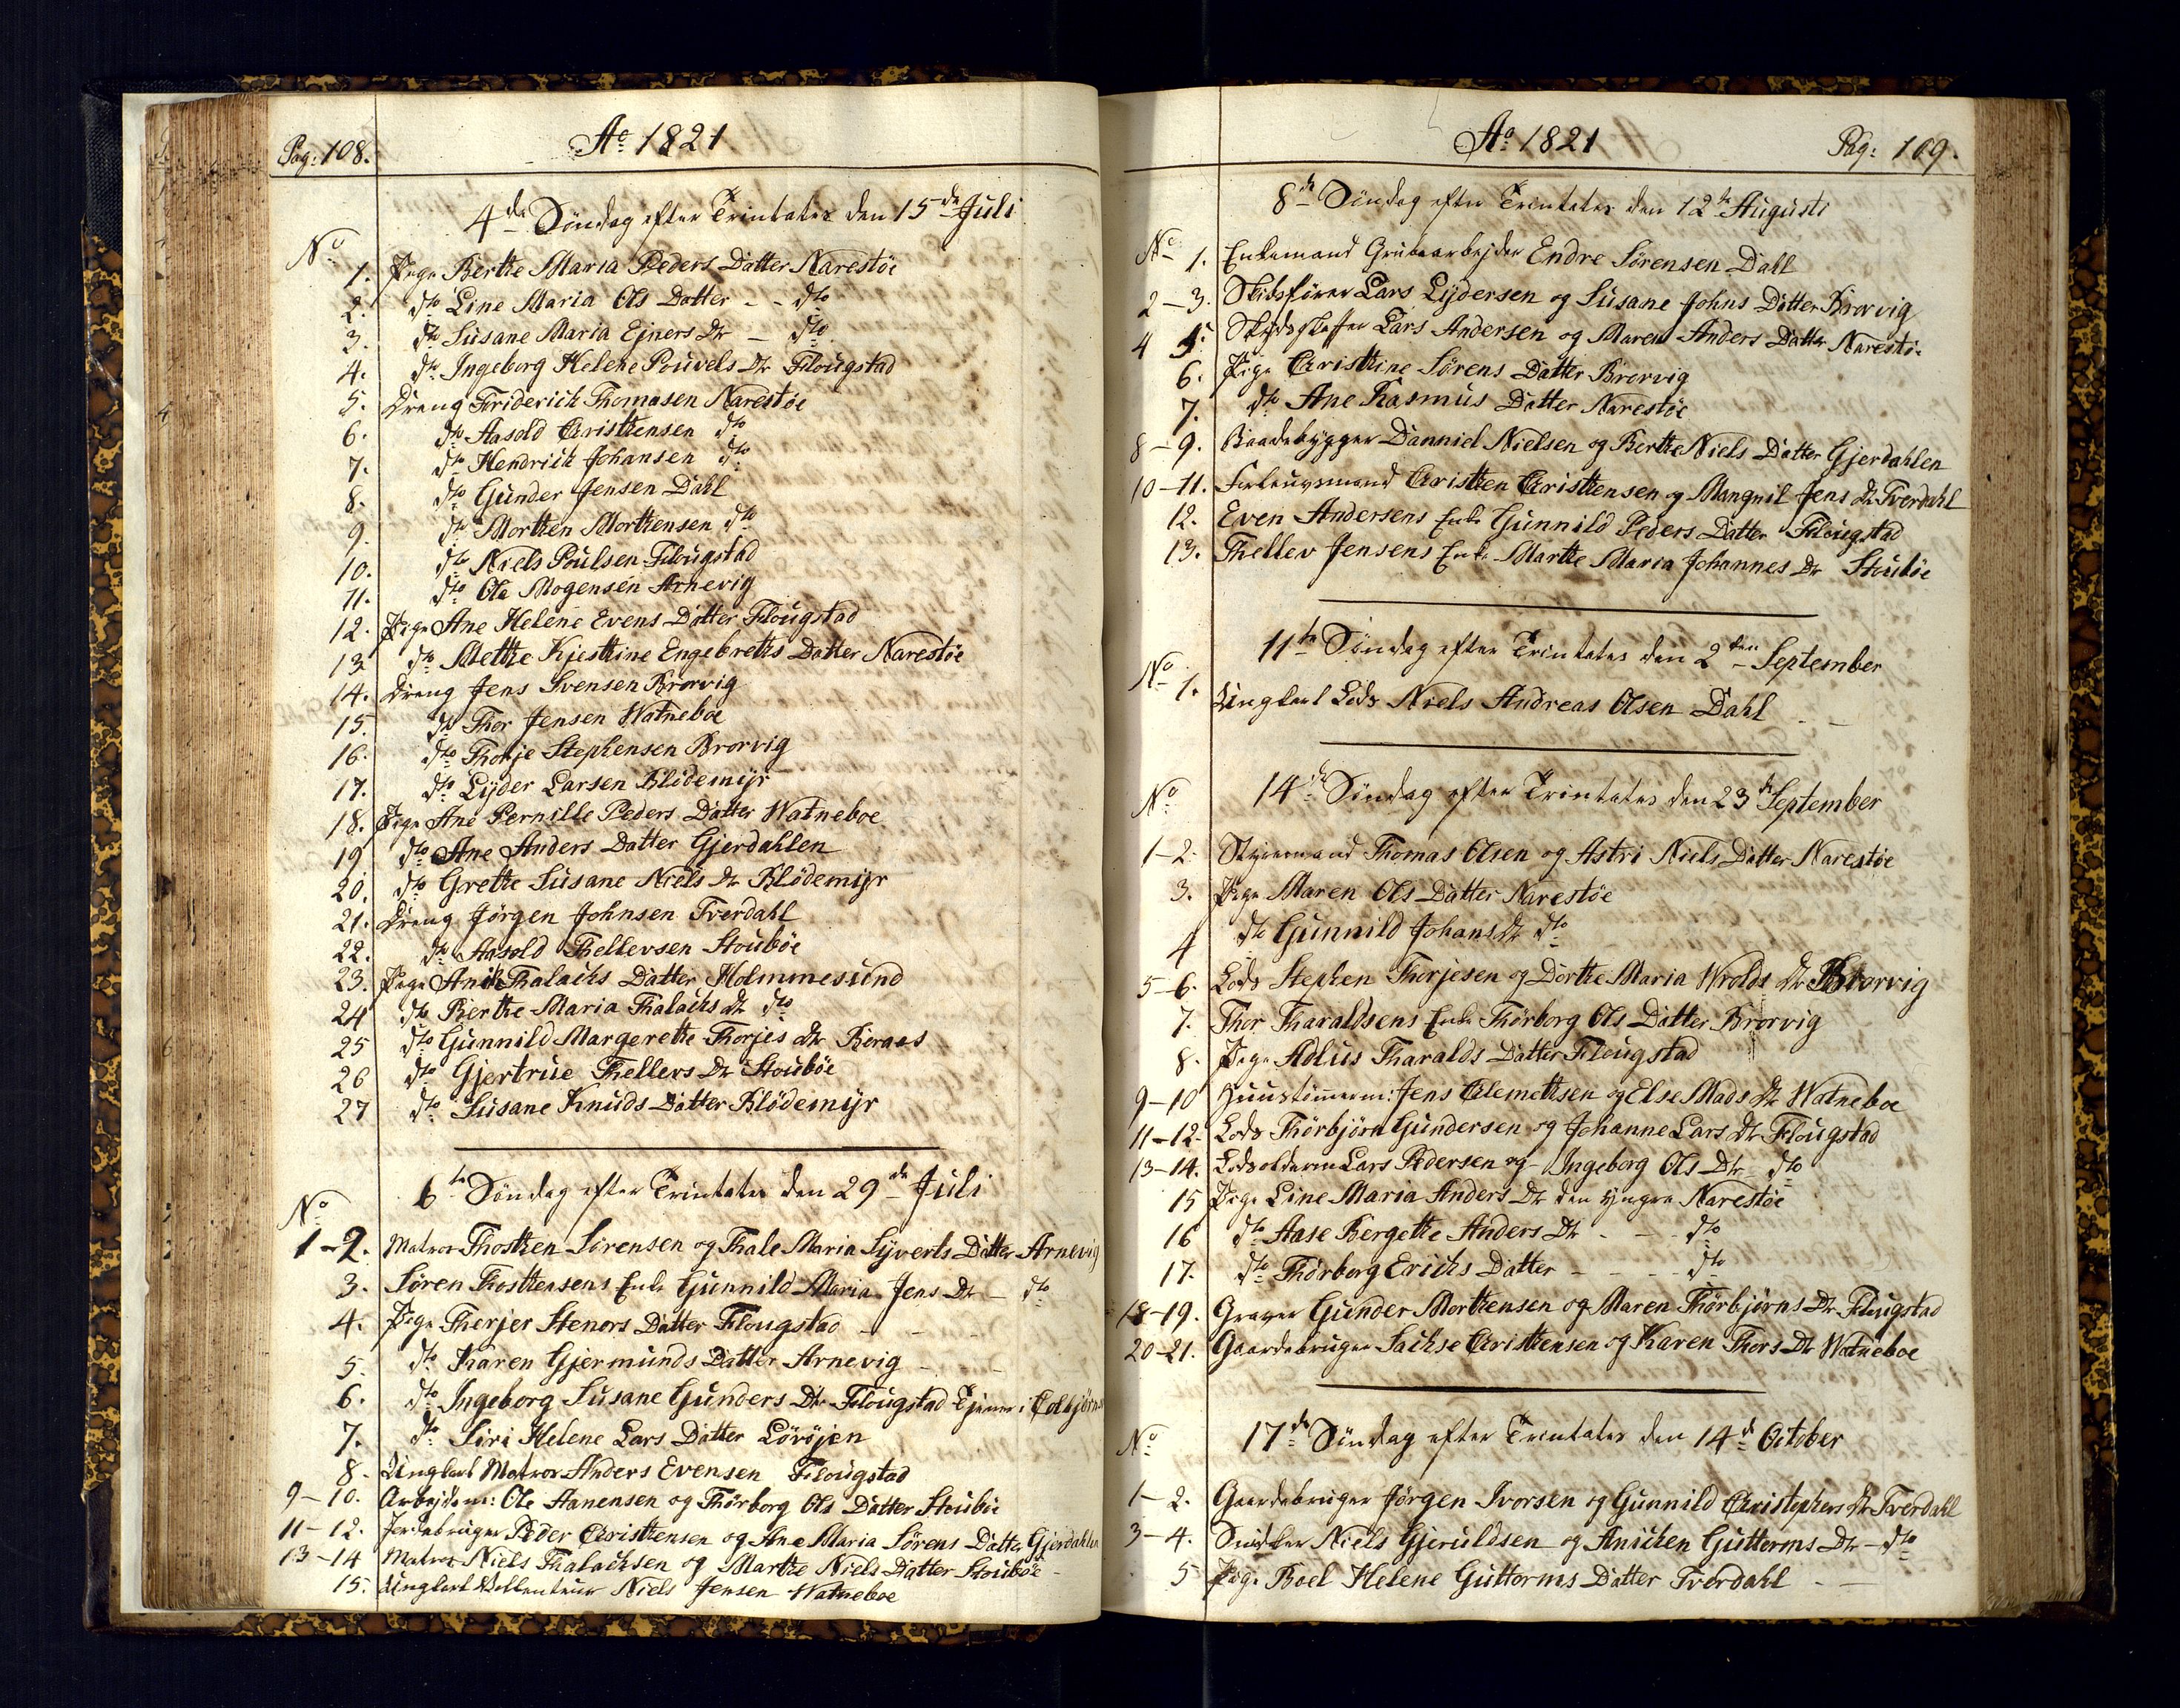 Pag: 108.
Ao 1821
4de Söndag efter Trintates den 15de Juli
No
1. Pige Berthe Maria Peders Datter Narestöe
2. dto Line Maria Ols Datter - - dto
3. dto Susane Maria Ejners Dtr - dto
4. dto Ingeborg Helene Pouvels Dtr Flougstad
5. Dreng Friderich Thomasen Narestöe
6. dto Aasold Christhensen dto
7. dto Hendrich Johansen dto
8. dto Gunder Jensen Dahl
9. dto Morthen Morthensen dto
10. dto Niels Poulsen Flougstad
11. dto Ole Mogensen Arnevig
12. Pige Ane Helene Evens Datter Flougstad
13 dto Methe Kjesthine Engebreths Datter Narestöe
14. Dreng Jens Svensen Brorvig
15. dto Thor Jensen Watneboe
16. dto Thorje Stephensen Brorvig
17. dto Lyder Larsen Blödemyr
18. Pige Ane Pernille Peders Datter Watneboe
19 dto Ane Anders Datter Gjerdahlen
20. dto Grethe Susane Niels Dtr Blödemyr
21. Dreng Jörgen Johnsen Tverdahl
22. dto Aasold Thellevsen Stouböe
23. Pige Anne Thalachs Datter Holmmesund
24 dto Berthe Maria Thalachs Dtr dto
25 dto Gunnild Margerethe Thorjes Dtr Boraas
26 dto Gjertrue Thellevs Dtr Stouböe
27 dto Susane Knuds Datter Blödemyr
6te Söndag efter Trintates den 29de Juli
No
1-2. Matros Thosthen Sörensen og Thale Maria Syverts Datter Arnevig
3. Sören Thosthensens Enke Gunnild Maria Jens Dtr - dto
4. Pige Therjer Stenors Datter Flougstad - - -
5. dto Karen Gjermunds Datter Arnevig -
6. dto Ingeborg Susane Gunders Dtr Flougstad Tjener i
7. dto Siri Helene Lars Datter Lövöjen
8. Ungkarl Matros Anders Evensen Flougstad
9-10. Arbejdsm: Ole Aanensen og Thörborg Ols Datter Stouböe
11-12. Jordebruger Peder Christhensen og Ane Maria Sörens Datter Gjerdahlen
13-14 Matros Niels Thalachsen og Marthe Niels Datter Stouböe -
15. Ungkarl Niels Jensen Watneboe
Ao 1821
Pag: 109.
8de Söndag efter Trintates den 12te Augusti
No
1. Enkemand Grubearbejder Endre Sörensen Dahl
2-3. Skibsförer Lars Lydersen og Susane Johns Datter Brorvig
4 5. Skydsskaffer Lars Andersen og Maren Anders Datter Narestöe
6. Pige Christhine Sörens Datter Brorvig
7. dto Ane Rasmus Datter Narestöe
8-9. Baadebygger Danniel Nielsen og Berthe Niels Datter Gjerdahlen
10-11. Forleugsmand Christhen Christhensen og Mangnil Jens Dtr Tverdahl
12. Even Andersens Enke Gunnild Peders Datter Flougstad
13. Thellev Jensens Enke Marthe Maria Johannes Dtr Stouböe
11te Söndag efter Trintates den 2den September
No
1. Ungkarl Lods Niels Andreas Olsen Dahl - -
14de Söndag efter Trintates den 23de September
No
1-2. Styrmand Thomas Olsen og Astri Niels Datter Narestöe
3. Pige Maren Ols Datter Narestöe
4 dto Gunnild Johans Dtr dto
5-6. Lods Stephen Thorjesen og Dorthe Maria Wrolds Dtr Brorvig
7. Thor Tharaldsens Enke Thörborg Ols Datter Brorvig
8. Pige Adlus Tharalds Datter Flougstad
9-10 Huustömerm: Jens Clemethsen og Else Mads Dtr Watneboe
11-12. Lods Thörbjörn Gundersen og Johanne Lars Dtr Flougstad
13-14. Lodsolderm Lars Pedersen og Ingeborg Ols Dtr dto
15 Pige Line Maria Anders Dtr den yngre Narestöe
16 dto Aase Bergethe Anders Dtr - - dto
17. dto Thörborg Erichs Datter - - - - dto
18-19. Graver Gunder Morthensen og Maren Thörbjörns Dtr Flougstad
20-21. Gaardebruger Sachse Christhensen og Karen Thors Dtr Watneboe
17de Söndag efter Trintates den 14de October
No
1-2. Gaardebruger Jörgen Ivorsen og Gunnild Christephers Dtr Tverdahl
3-4. Snidker Niels Gjeruldsen og Anichen Gutterms Dtr - dto
5 Pige Boel Helene Guttorms Datter Tverdahl - -